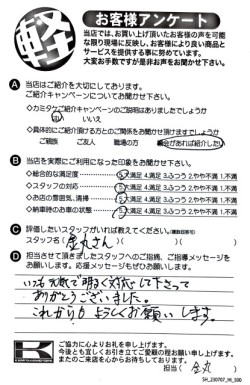 軽
お客様アンケート
当店では、お買い上げ頂いたお客様の声を可能
な限り現場に反映し、お客様により良い商品と
サービスを提供する事に努めています。
大変お手数ですが是非お声をお聞かせ下さい。
A 当店はご紹介を大切にしております。
ご紹介キャンペーンについてお聞かせ下さい。
◇カミタケご紹介キャンペーンのご説明はありましたでしょうか
はい いいえ
◇具体的にご紹介頂ける方とのご関係をお聞かせ頂けますでしょうか
ご親族 ご友人 職場の方 機会があれば紹介したい
B 当店を実際にご利用になった印象をお聞かせ下さい。
◇総合的な満足度 5.大満足 4.満足 3.ふつう 2.やや不満 1.不満
◇スタッフの対応 5.大満足 4.満足 3.ふつう 2.やや不満 1.不満
◇お店の雰囲気、清掃 5.大満足 4.満足 3.ふつう 2.やや不満 1.不満
◇納車時のお車の状態 5.大満足 4.満足 3.ふつう 2.やや不満 1.不満
C 評価したいスタッフがいれば教えてください。(複数回答可)
スタッフ名( 金丸さん )( )( )
D 担当させて頂きましたスタッフへのご指摘、ご指導メッセージを
お願いします。応援メッセージもぜひお願いします。
いつも元気で明るく対応して下さって
ありがとうございました。
これからもよろしくお願いします。
ご協力に心よりお礼を申し上げます。
今後とも宜しくお引き立てご愛顧の程お願い申し上げます。
またのご来店を心からお待ちしております。
担当( 金丸 )
SH_230707_M_300